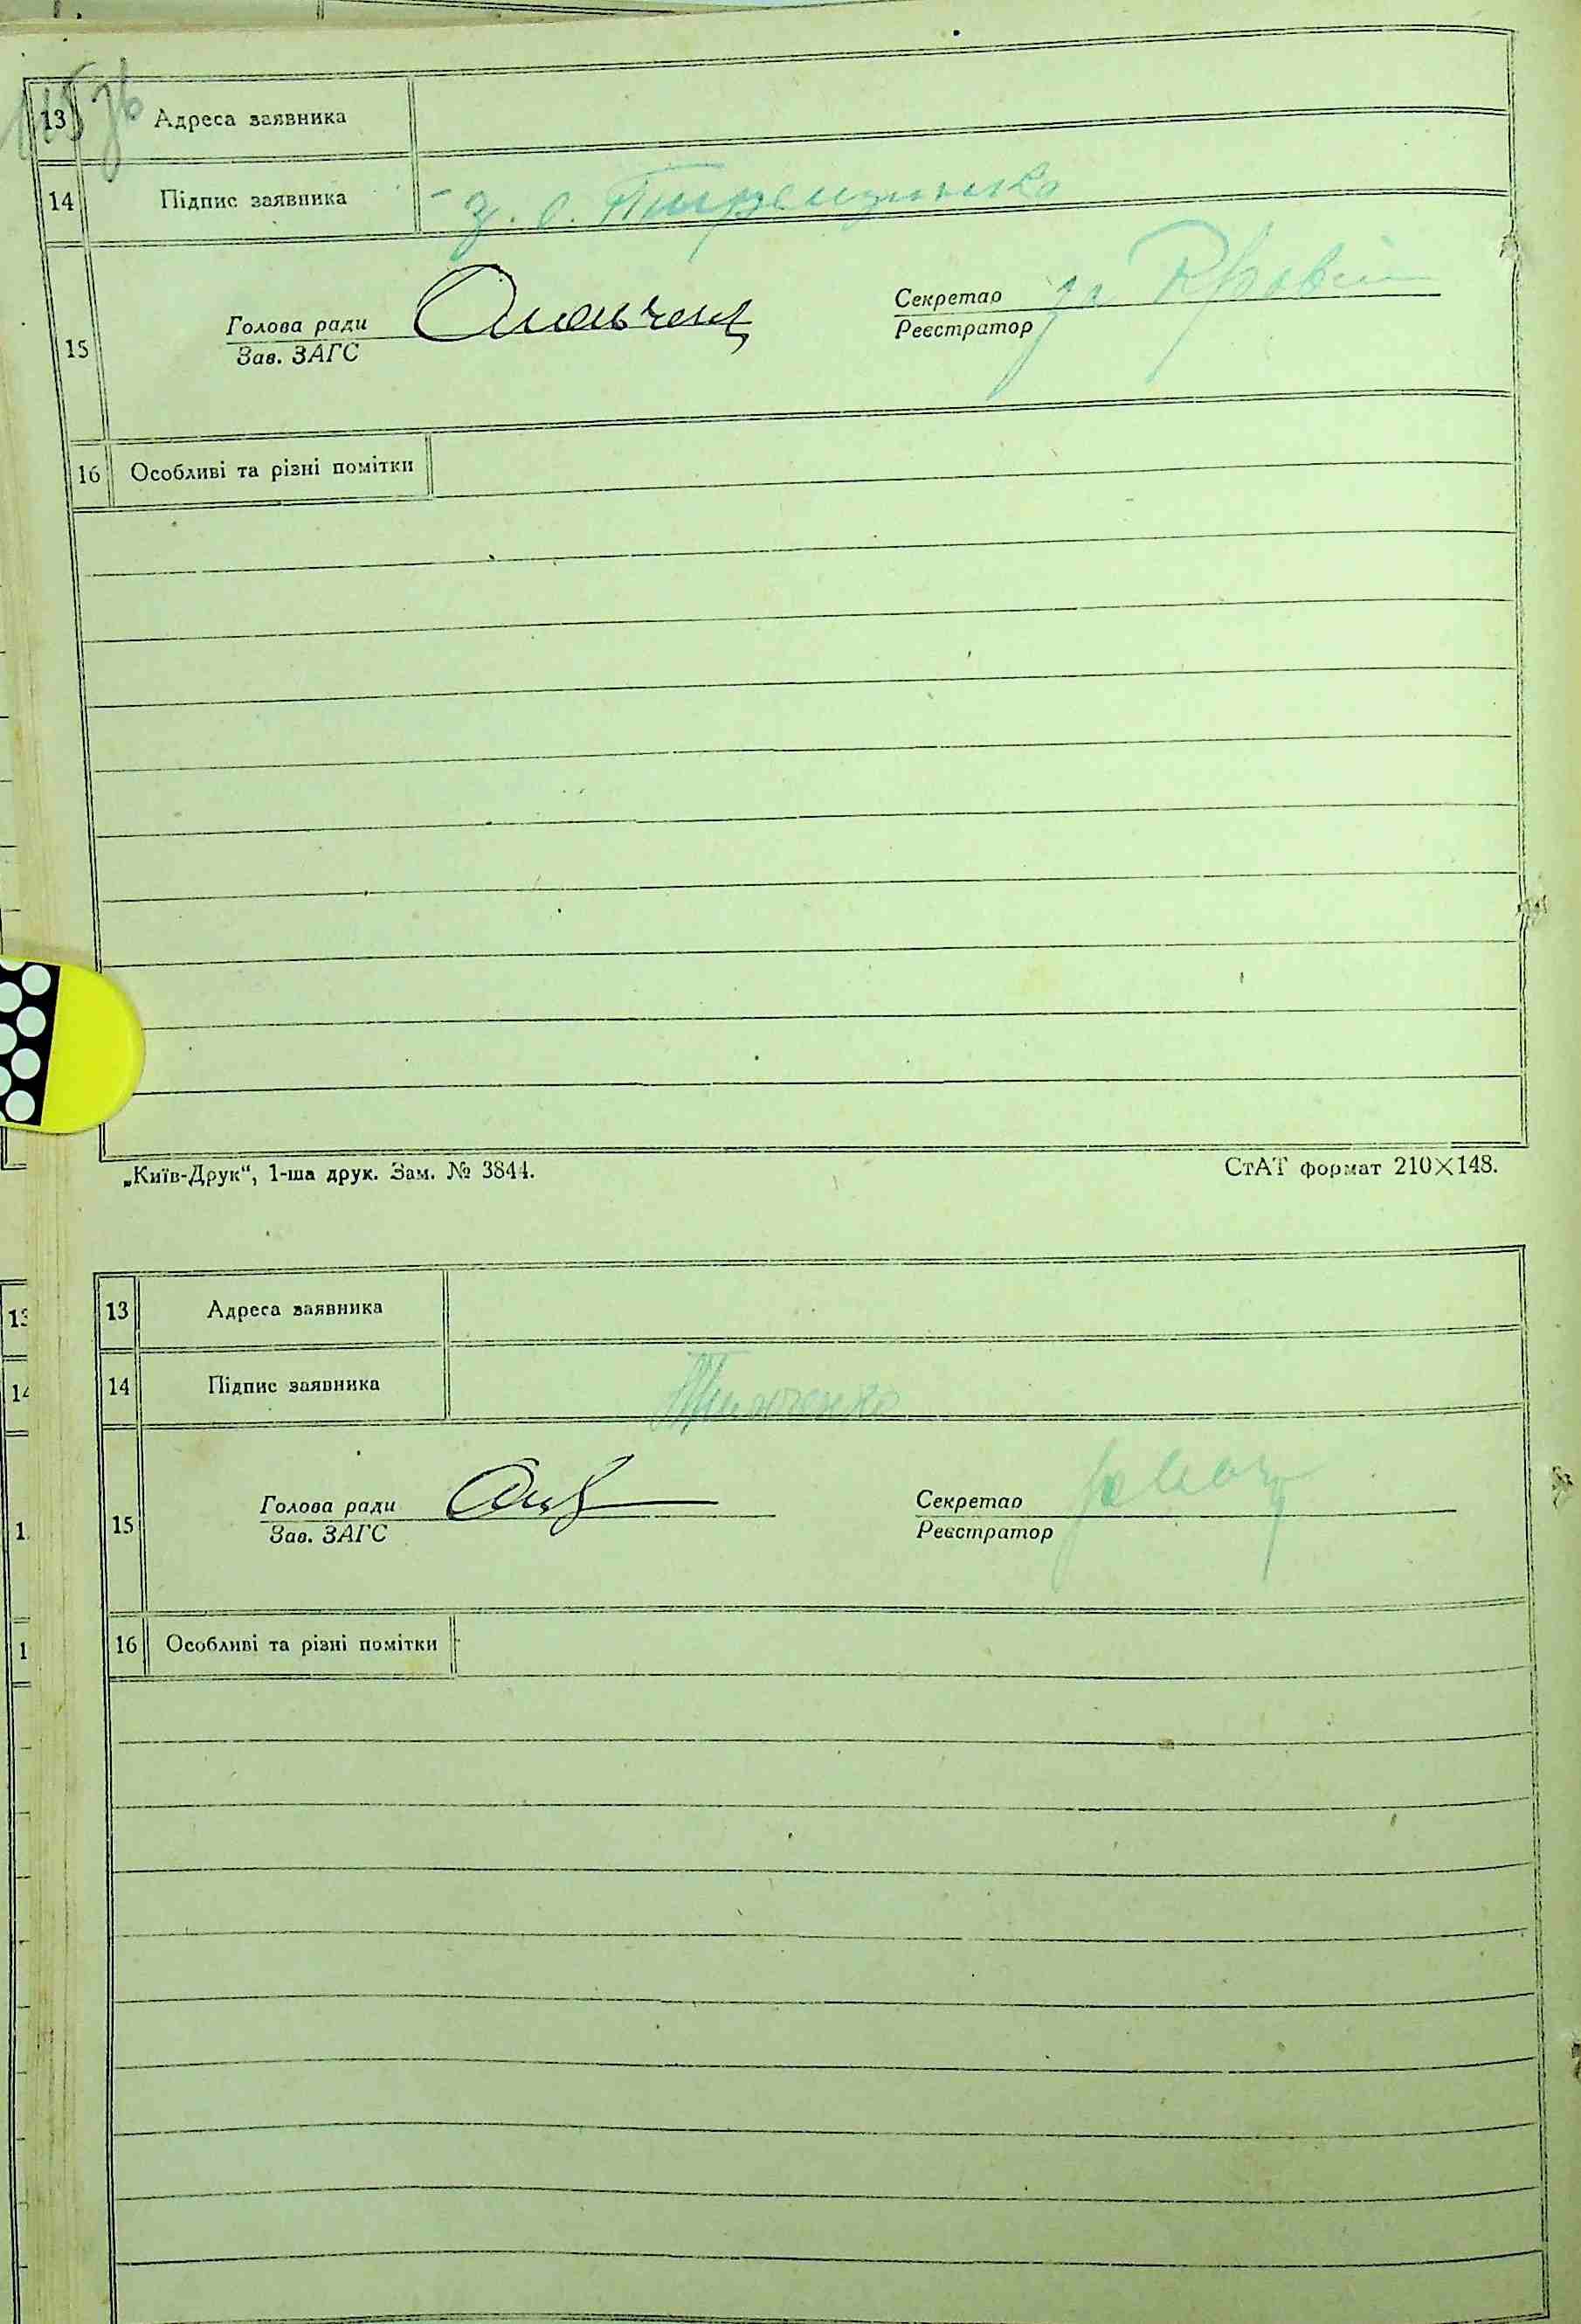 115 зв
13 Адреса заявника
14 Підпис заявника
Голова ради
Секретар
15
Зав. ЗАГС
Реєстратор
16 Особливі та різні помітки
„Київ-Друк“, 1-ша друк. Зам. № 3844.
СтАТ формат 210×148.
13 Адреса заявника
14 Підпис заявника
Голова ради
Секретар
15
Зав. ЗАГС
Реєстратор
16 Особливі та різні помітки